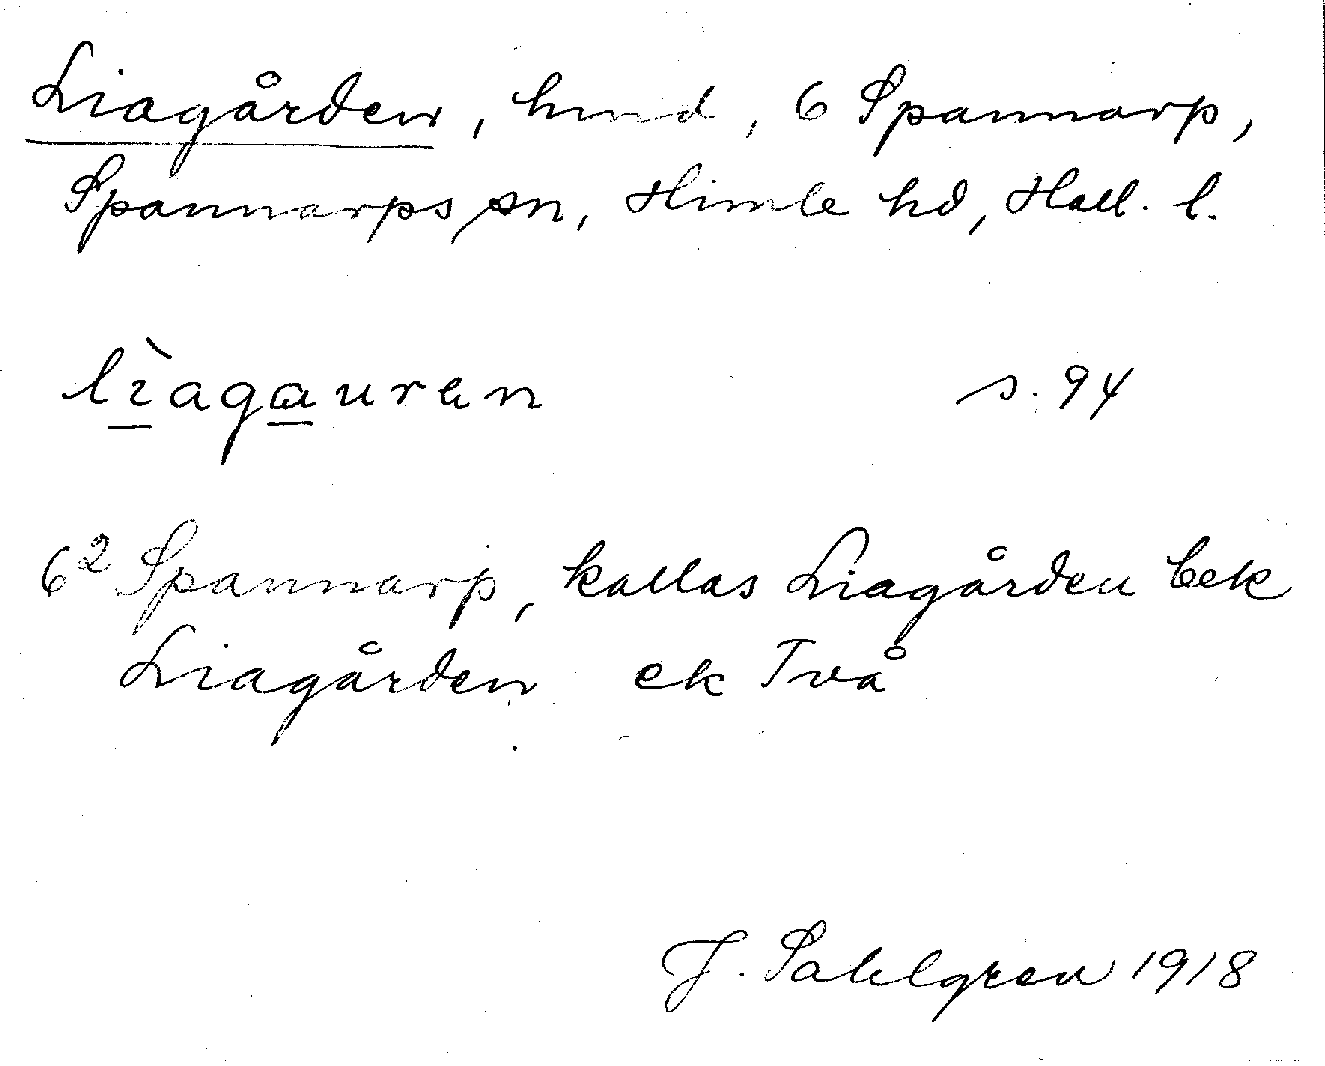 Liagården, hmd, 6 Spannarp,
Spannarps sn, Himle hd, Hall. l.
lìagauren s. 94
6² Spannarp, kallas Liagården bek
Liagården ek Två
J. Sahlgren 1918